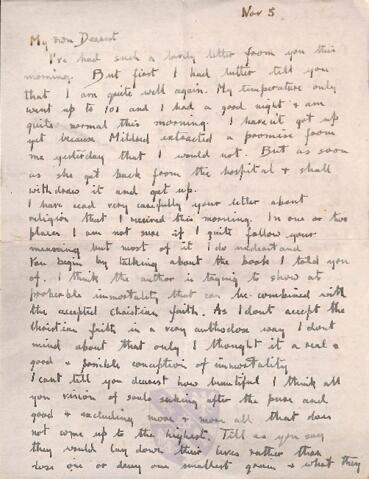 Nov 5.
My own Dearest
I've had such a lovely letter from you this
morning. But first I had better tell you
that I am quite well again. My temperature only
went up to 101 and I had a good night & am
quite normal this morning. I havent got up
yet because Mildred extracted a promise from
me yesterday that I would not. But as soon
as she get back from the hospital & shall
withdraw it and get up.
I have read very carefully your letter about
religion that I recived this morning. In one or two
places I am not sure if I quite follow your
meaning but most of it I do understand
You begin by talking about the book I told you
of. I think the author is trying to show a
probable immortality that can be combined with
the accepted Christian faith. As I dont accept the
Christian faith in a very orthodox way I dont
mind about that only I thought it a real &
good & possible conception of immortality
I cant tell you dearest how beautiful I think all
your vision of souls seeking after the pure and
good & excluding more & more all that does
not come up to the highest. Till as you say
they would lay down their lives rather than
lose one or deny one smallest grain & what they